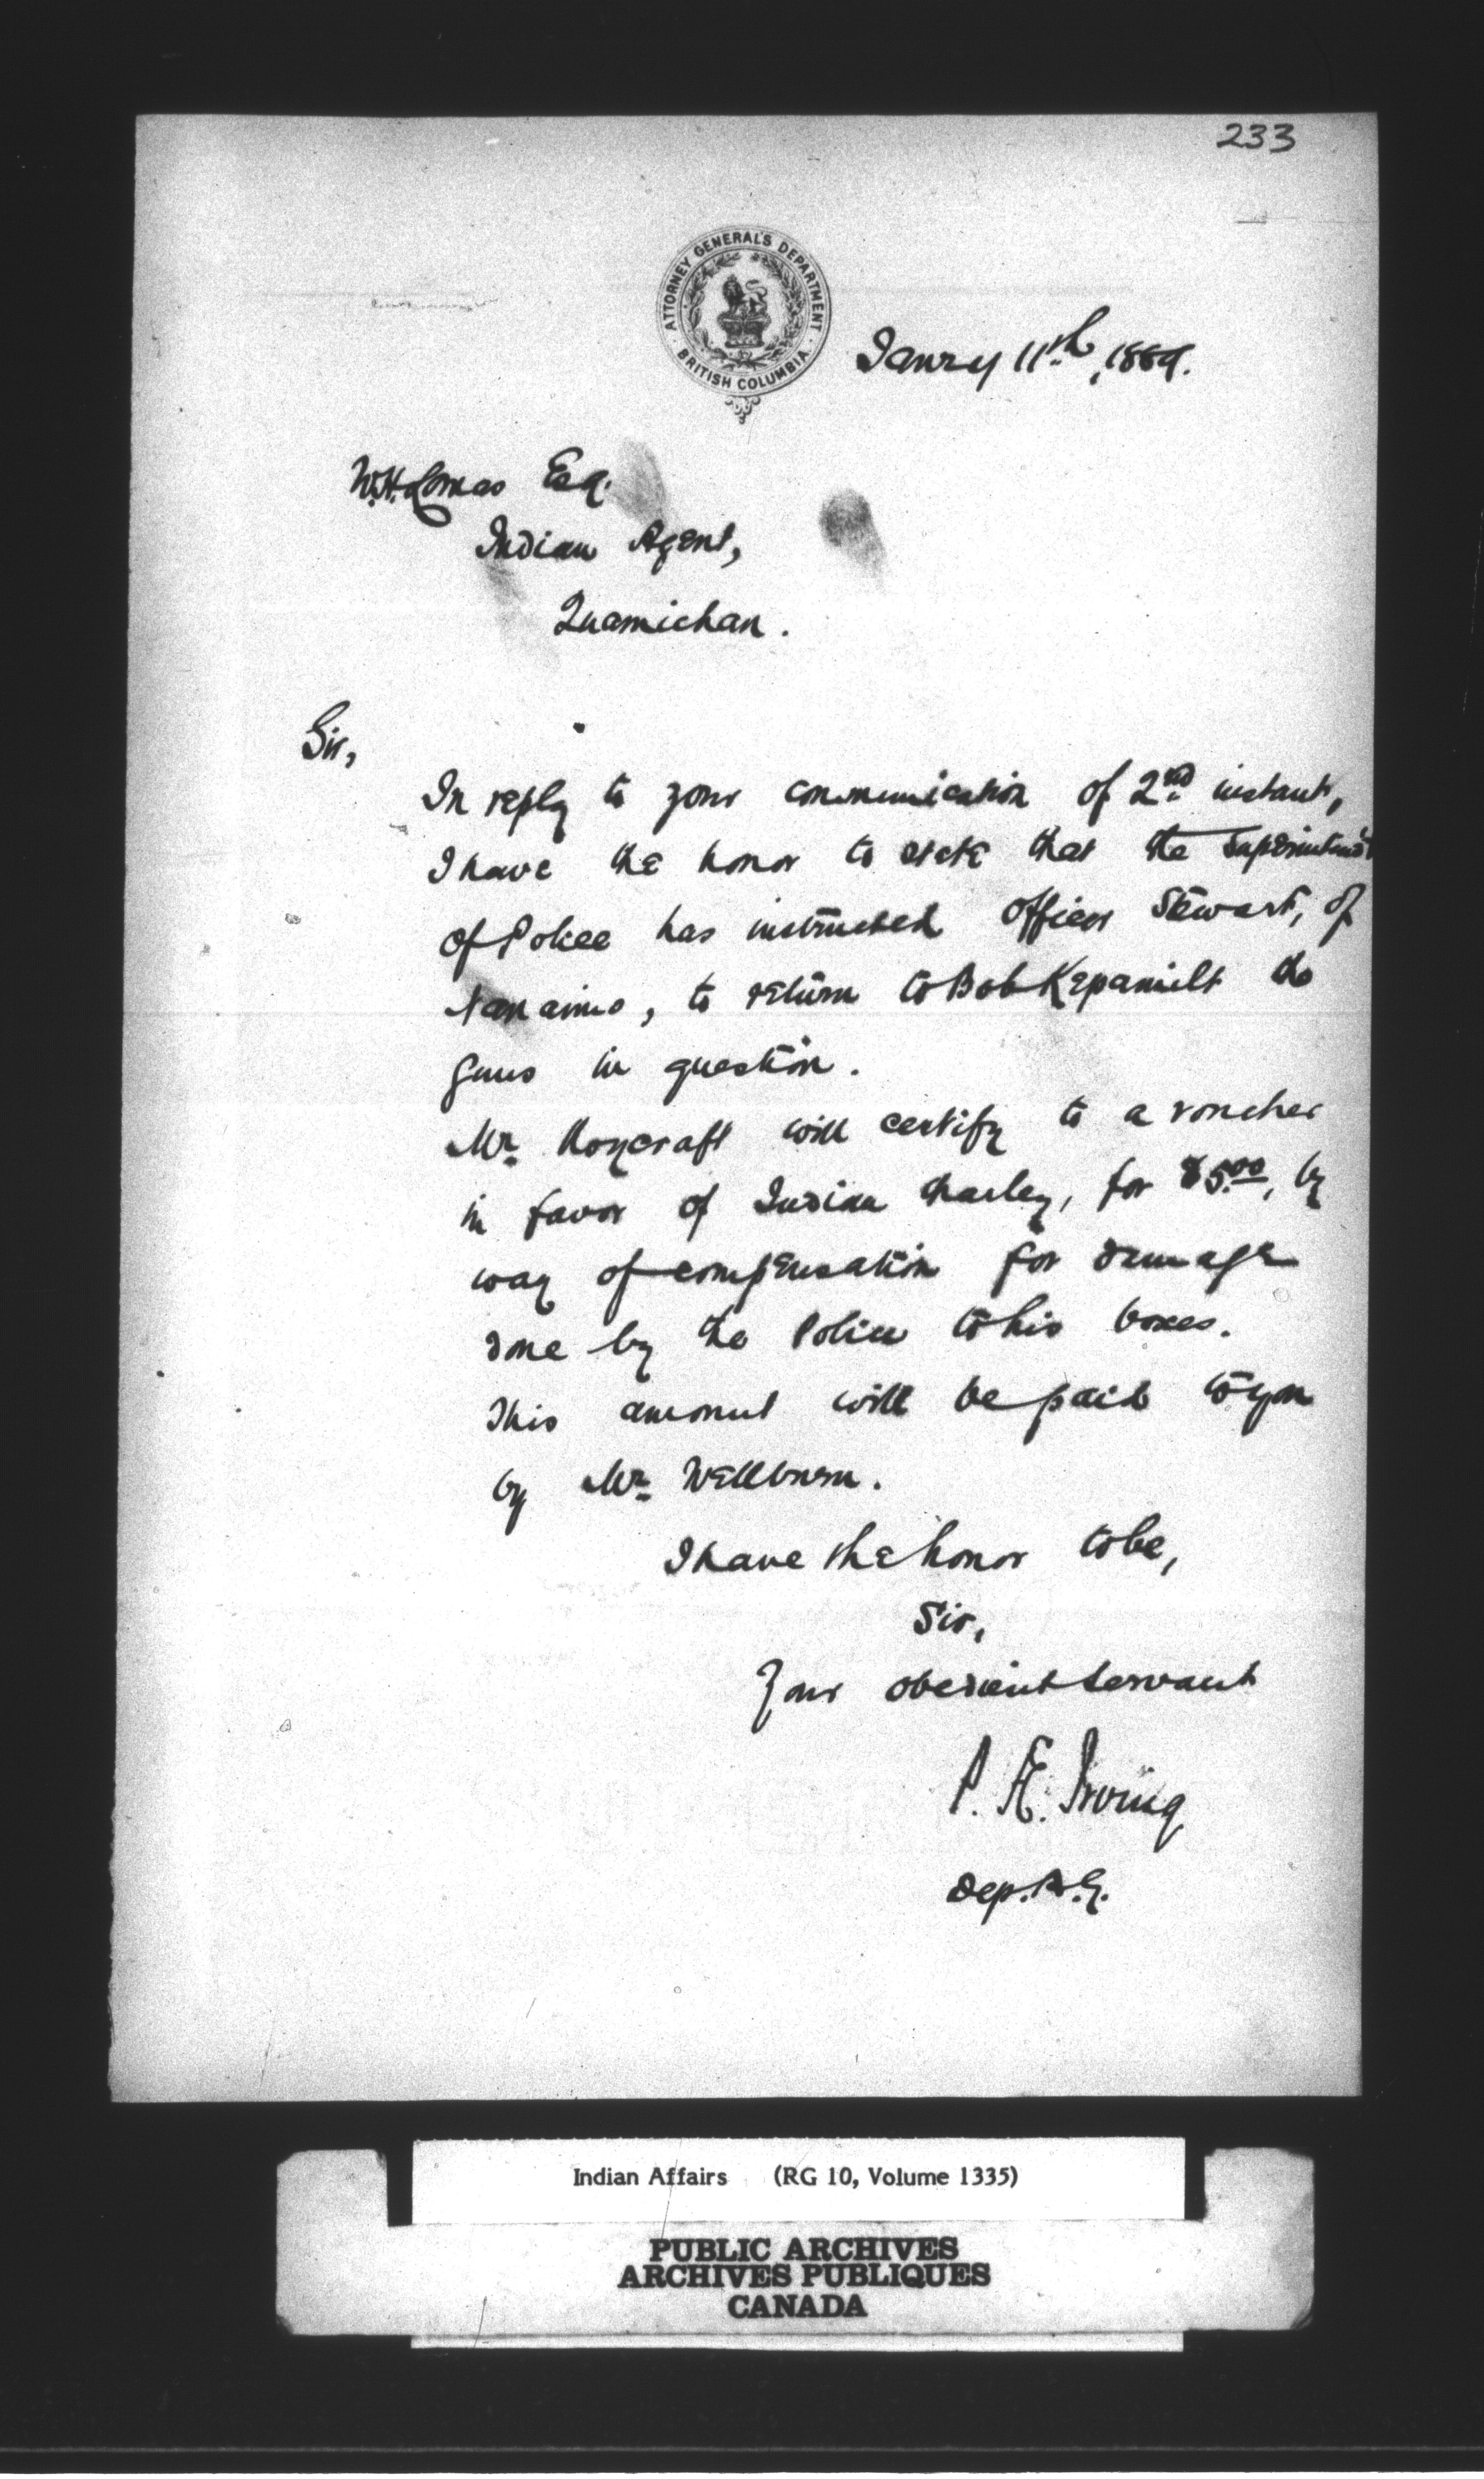 233
ATTORNEY GENERAL'S DEPARTMENT
BRITISH COLUMBIA
Janry 11th, 1889.
W.H. Lomas Esq.
Indian Agent,
Quamichan.
Sir,
In reply to your communication of 2nd instant,
I have the honor to state that the Superintendt
of Police has instructed Officer Stewart, of
Nanaimo, to return to Bob Kepamilt the
guns in question.
Mr. Roycraft will certify to a voucher
in favor of Indian Charley, for $5.00, by
way of compensation for damage
done by the Police to his boxes.
This amount will be paid to you
by Mr. Wellburn.
I have the honor to be,
Sir,
Your obedient servant
P. Æ. Irving
Dep. A.G.
Indian Affairs (RG 10, Volume 1335)
PUBLIC ARCHIVES
ARCHIVES PUBLIQUES
CANADA